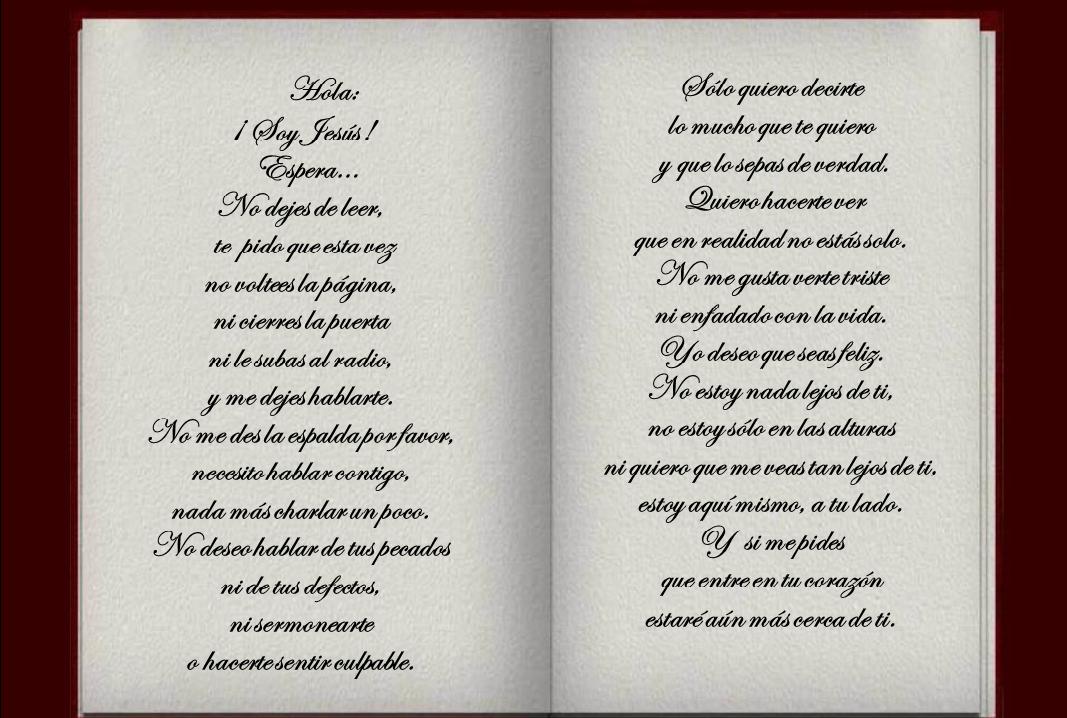 Hola:
¡ Soy Jesús !
Espera...
No dejes de leer,
te pido que esta vez
no voltees la página,
ni cierres la puerta
ni le subas al radio,
y me dejes hablarte.
No me des la espalda por favor,
necesito hablar contigo,
nada más charlar un poco.
No deseo hablar de tus pecados
ni de tus defectos,
ni sermonearte
o hacerte sentir culpable.
Sólo quiero decirte
lo mucho que te quiero
y que lo sepas de verdad.
Quiero hacerte ver
que en realidad no estás solo.
No me gusta verte triste
ni enfadado con la vida.
Yo deseo que seas feliz.
No estoy nada lejos de ti,
no estoy sólo en las alturas
ni quiero que me veas tan lejos de ti.
estoy aquí mismo, a tu lado.
Y si me pides
que entre en tu corazón
estaré aún más cerca de ti.